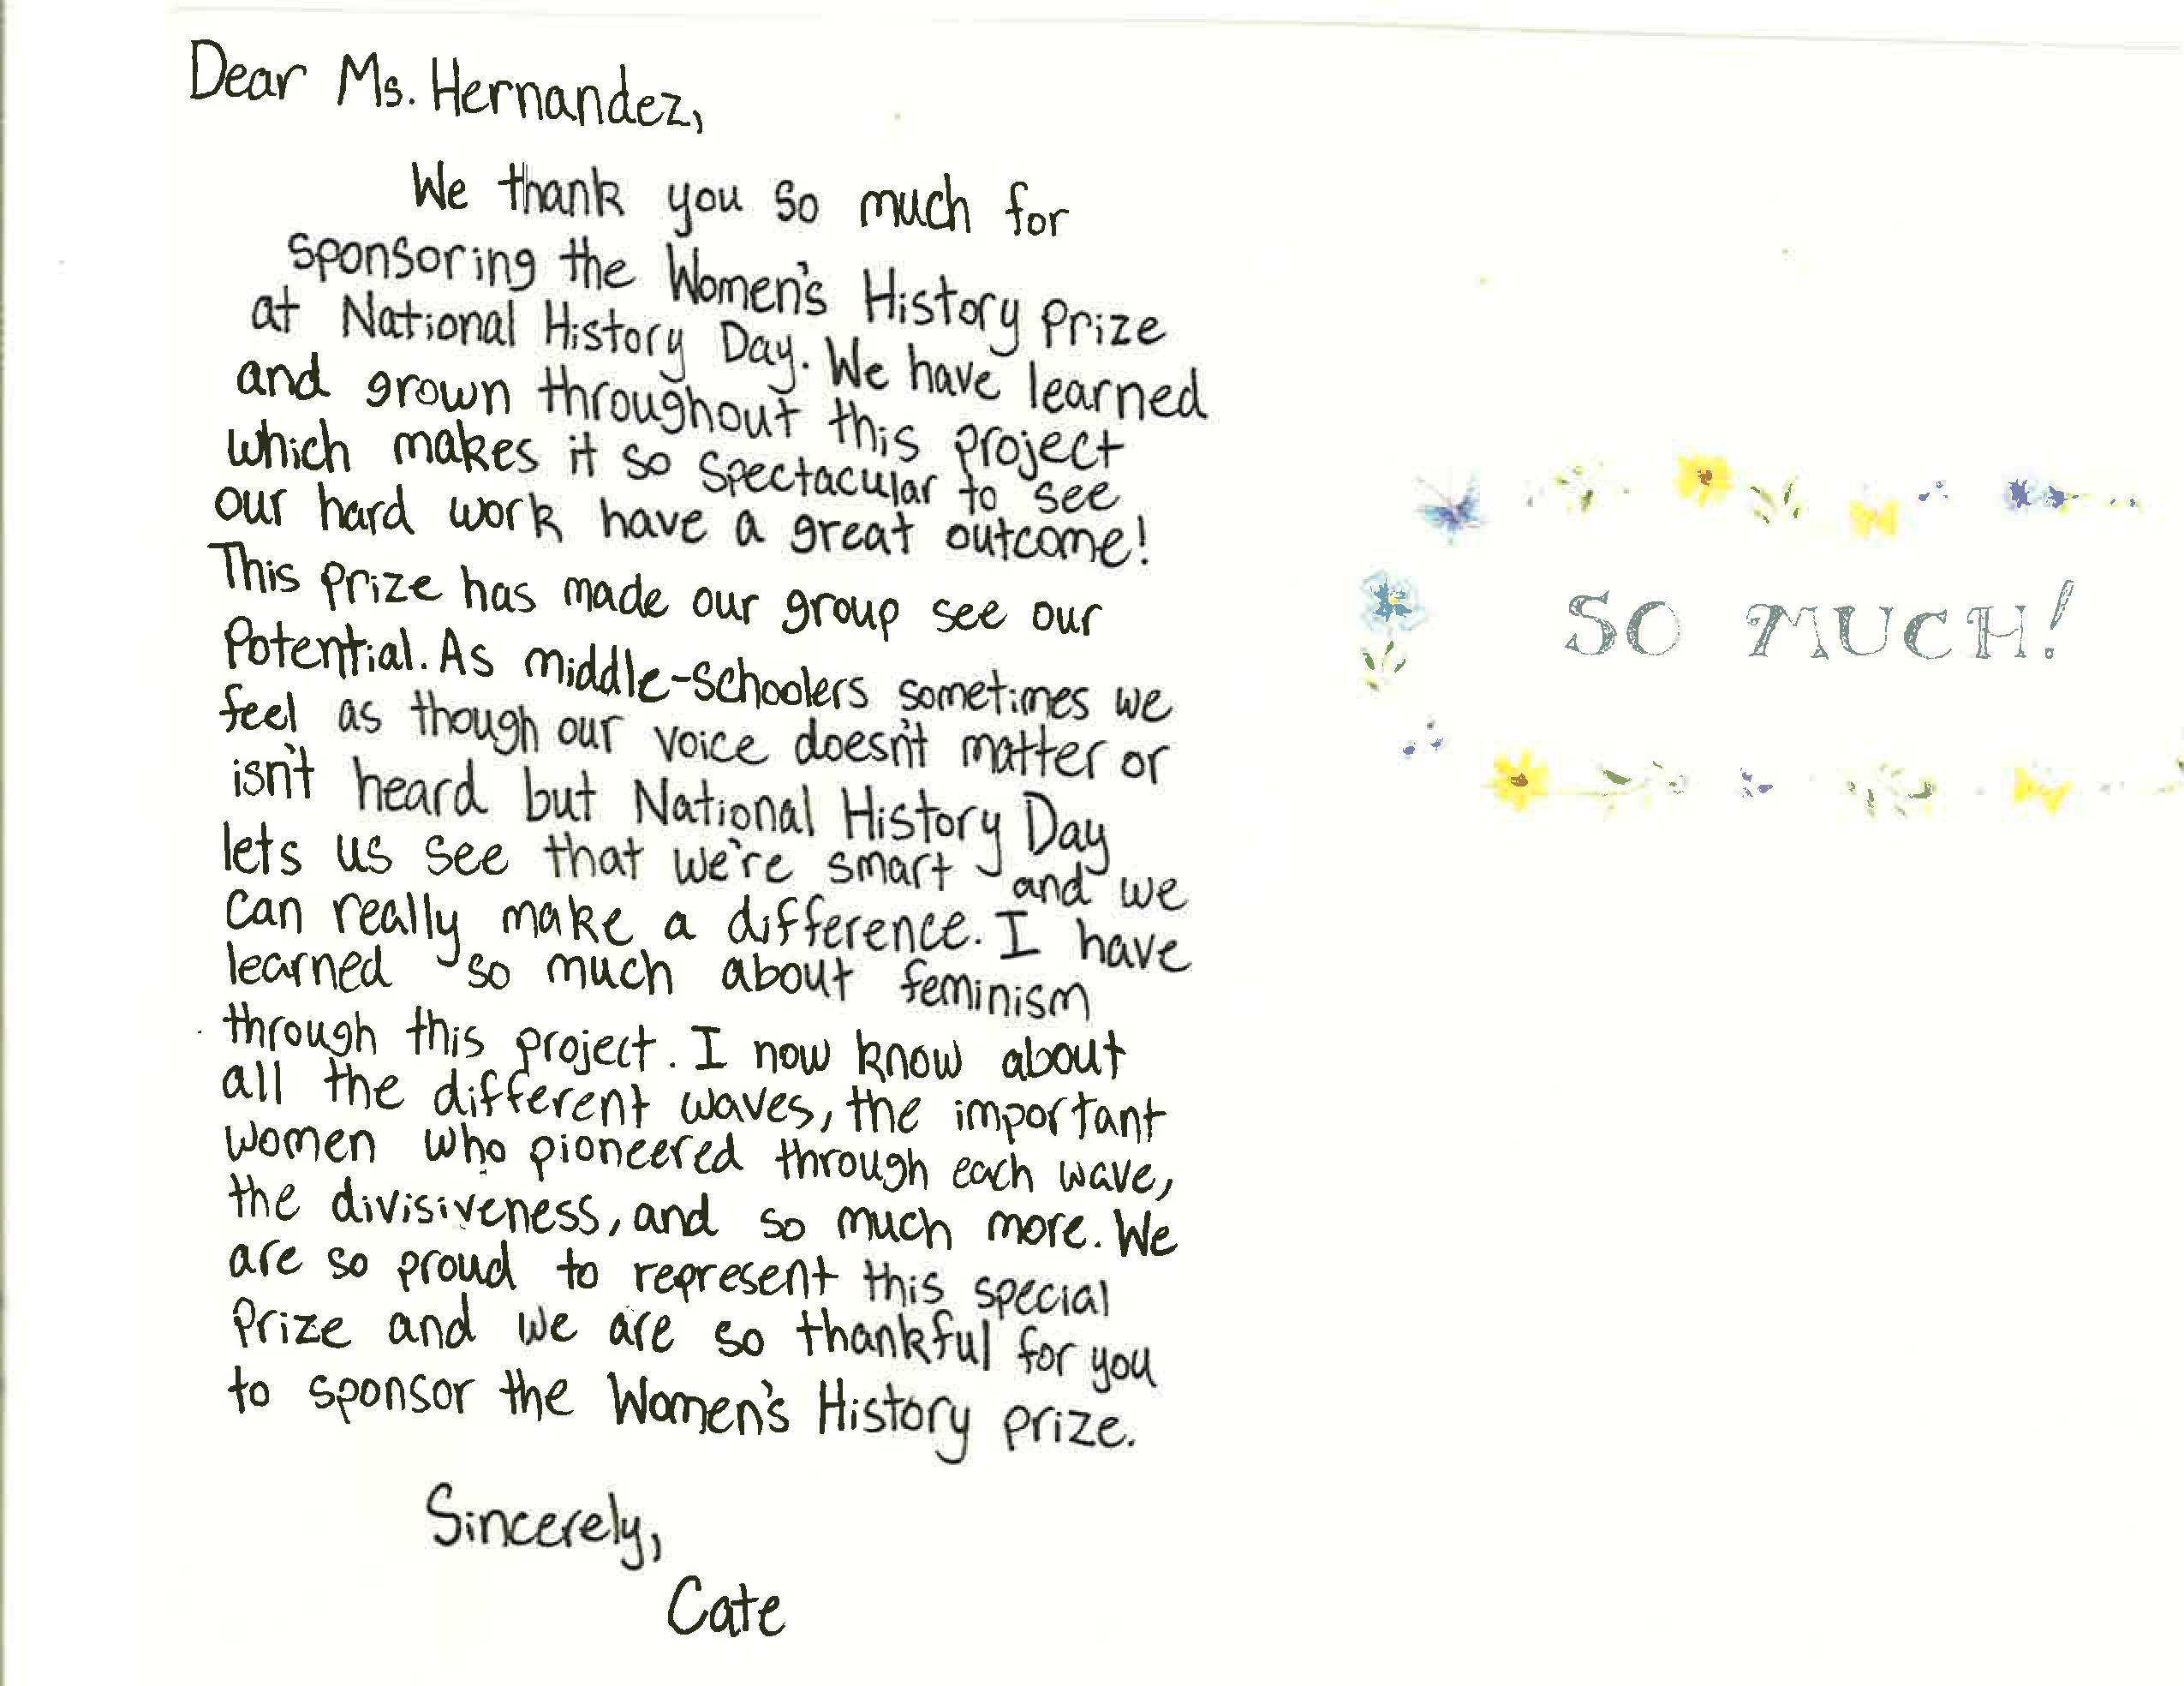 Dear Ms. Hernandez,
We thank you so much for
sponsoring the Women's History Prize
at National History Day. We have learned
and grown throughout this project
which makes it so spectacular to see
our hard work have a great outcome!
This prize has made our group see our
Potential. As middle-schoolers sometimes we
feel as though our voice doesn't matter or
isn't heard but National History Day
lets us see that we're smart and we
can really make a difference. I have
learned so much about feminism
through this project. I now know about
all the different waves, the important
women who pioneered through each wave,
the divisiveness, and so much more. We
are so proud to represent this special
Prize and we are so thankful for you
to sponsor the Women's History prize.
Sincerely,
Cate
SO MUCH!